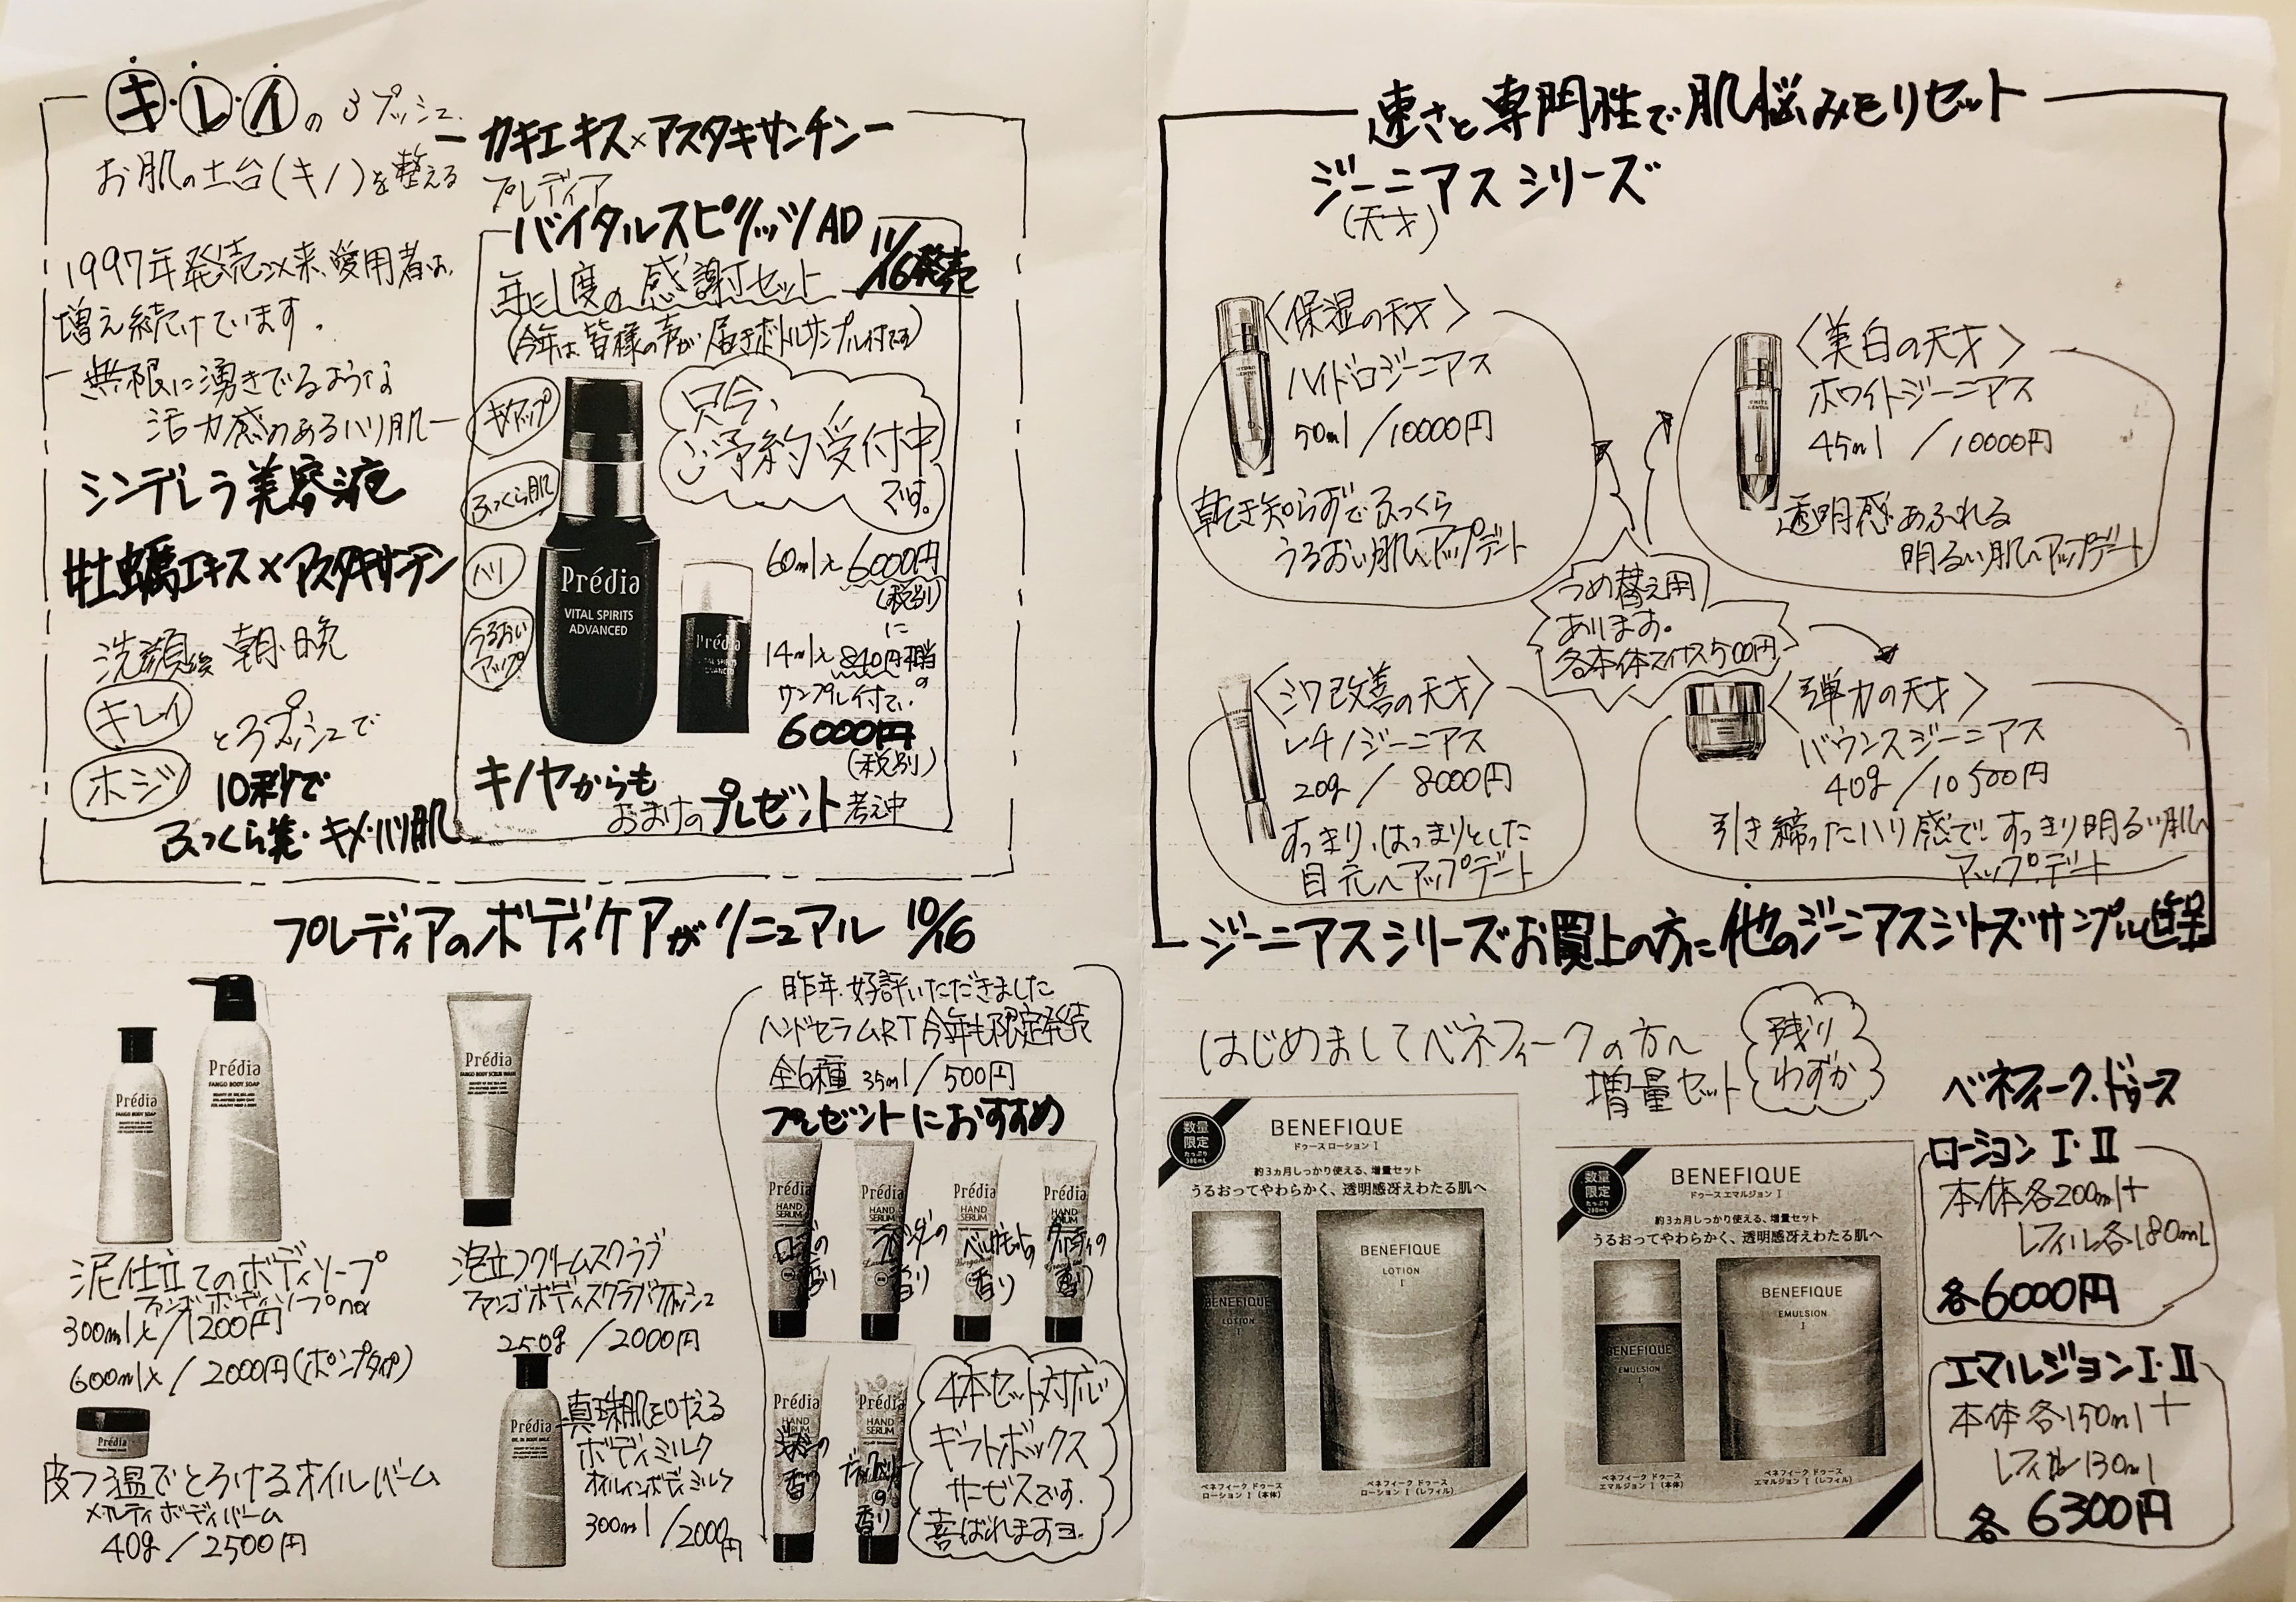 キ・レ・イの3プッシュ
お肌の土台(キノ)を整える
1997年発売以来、愛用者は、
増え続けています。
無限に湧きでるような
活力感のあるハリ肌
シンデレラ美容液
牡蠣エキス×アスタキサンチン
洗顔後 朝・晩
キレイ
と3プッシュで
ホジ
10秒で
ふっくら美・キメ・ハリ肌
カキエキス×アスタキサンチン
プレディア
バイタルスピリッツAD
11/16発売
年に1度の感謝セット
(今年は皆様の声が届きボトルサンプル付です)
キメアップ
ふっくら肌
ハリ
うるおい
アップ
只今、
ご予約受付中
です。
Prédia
VITAL SPIRITS
ADVANCED
Prédia
VITAL SPIRITS
ADVANCED
60ml 6000円
(税別)
に
14ml 840円相当の
サンプル付で、
6000円
(税別)
キノヤからも
おまけのプレゼント考え中
プレディアのボディケアがリニューアル 10/16
Prédia
FANGO BODY SOAP
Prédia
FANGO BODY SOAP
泥仕立てのボディソープ
ファンゴ ボディソープnα
300ml/1200円
600ml/2000円(ポンプタイプ)
Prédia
FANGO BODY SCRUB WASH
泡立つクリームスクラブ
ファンゴボディスクラブウォッシュ
250g/2000円
Prédia
皮フ温でとろけるオイルバーム
メルティボディバーム
40g/2500円
Prédia
OIL IN BODY MILK
真珠肌を叶える
ボディミルク
オイルインボディミルク
300ml/2000円
昨年、好評いただきました
ハンドセラムRT今年も限定発売
全6種 35ml/500円
プレゼントにおすすめ
Prédia
HAND
SERUM
ローズの
香り
Prédia
HAND
SERUM
ラベンダーの
香り
Prédia
HAND
SERUM
ベルガモットの
香り
Prédia
HAND
SERUM
香り
Prédia
HAND
SERUM
香り
Prédia
HAND
SERUM
の
香り
4本セット対応
ギフトボックス
サービスです。
喜ばれますヨ。
速さと専門性で肌悩みをリセット
ジーニアスシリーズ
(天才)
〈保湿の天才〉
ハイドロジーニアス
50ml/10000円
乾き知らずでふっくら
うるおい肌へアップデート
〈美白の天才〉
ホワイトジーニアス
45ml/10000円
透明感あふれる
明るい肌へアップデート
つめ替え用
あります。
各本体マイナス500円
〈シワ改善の天才〉
レチノジーニアス
20g/8000円
すっきり、はっきりとした
目元へアップデート
〈弾力の天才〉
バウンスジーニアス
40g/10500円
引き締ったハリ感で、すっきり明るい肌へ
アップデート
ジーニアスシリーズお買上の方に他のジーニアスシリーズサンプル進呈
はじめましてベネフィークの方へ
増量セット
残り
わずか
数量
限定
たっぷり
380mL
BENEFIQUE
ドゥース ローション Ⅰ
約3ヵ月しっかり使える、増量セット
うるおってやわらかく、透明感冴えわたる肌へ
BENEFIQUE
LOTION
Ⅰ
BENEFIQUE
LOTION
Ⅰ
ベネフィーク ドゥース
ローション Ⅰ (本体)
ベネフィーク ドゥース
ローション Ⅰ (レフィル)
数量
限定
たっぷり
280mL
BENEFIQUE
ドゥース エマルジョン Ⅰ
約3ヵ月しっかり使える、増量セット
うるおってやわらかく、透明感冴えわたる肌へ
BENEFIQUE
EMULSION
Ⅰ
BENEFIQUE
EMULSION
Ⅰ
ベネフィーク ドゥース
エマルジョン Ⅰ (本体)
ベネフィーク ドゥース
エマルジョン Ⅰ (レフィル)
ベネフィーク.ドゥース
ローション Ⅰ・Ⅱ
本体各200ml+
レフィル各180mL
各6000円
エマルジョンⅠ・Ⅱ
本体各150ml+
レフィル130ml
各 6300円